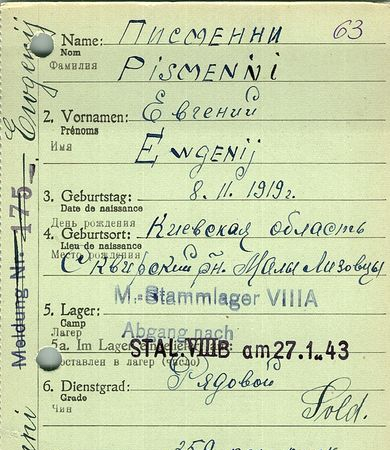 63
1. Name: Писменни
Nom
Фамилия
Pismenni
2. Vornamen: Евгений
Prénoms
Имя
Ewgenij
3. Geburtstag: 8. II. 1919г.
Date de naissance
День рождения
4. Geburtsort: Киевская область
Lieu de naissance
Место рождения
Сквирский рн. Малы Лизовцы
5. Lager: M.-Stammlager VIIIA
Camp
Лагер
Abgang nach
5a. Im Lager
STAL. VIIIB am 27.1.43
доставлен в лагер (число)
6. Dienstgrad: Рядовой
Grade
Чин
Sold.
Meldung Nr. 175
Ewgenij